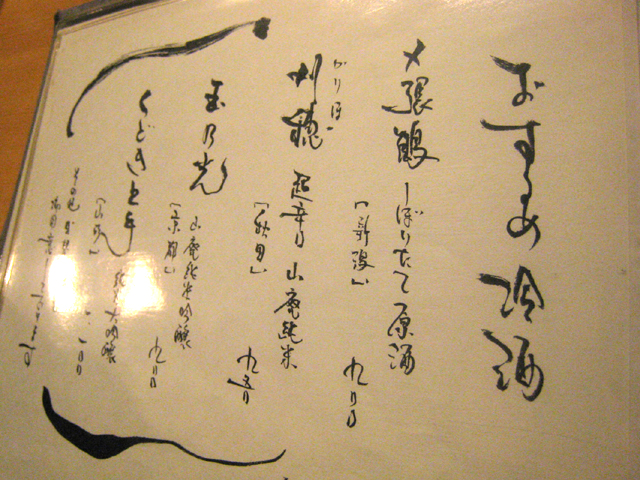 おすすめ 冷酒
〆張鶴 しぼりたて 原酒
「新潟」 九〇〇
かりほ
刈穂 超辛口 山廃純米
「秋田」 九五〇
玉乃光 山廃純米吟醸
「京都」 九〇〇
くどき上手 純米大吟醸
「山形」